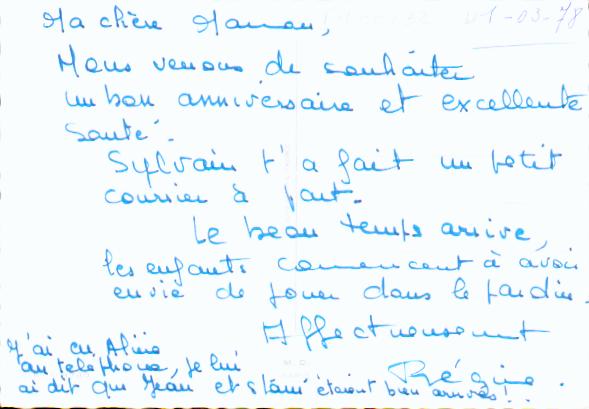 01-03-78
Ma chère Maman,
Nous venons de souhaiter
un bon anniversaire et excellente
santé.
Sylvain t'a fait un petit
courrier à part.
Le beau temps arrive,
les enfants commencent à avoir
envie de jouer dans le jardin.
Affectueusement
Régine.
J'ai eu Aline
au téléphone, je lui
ai dit que Jean et étaient bien arrivés!.